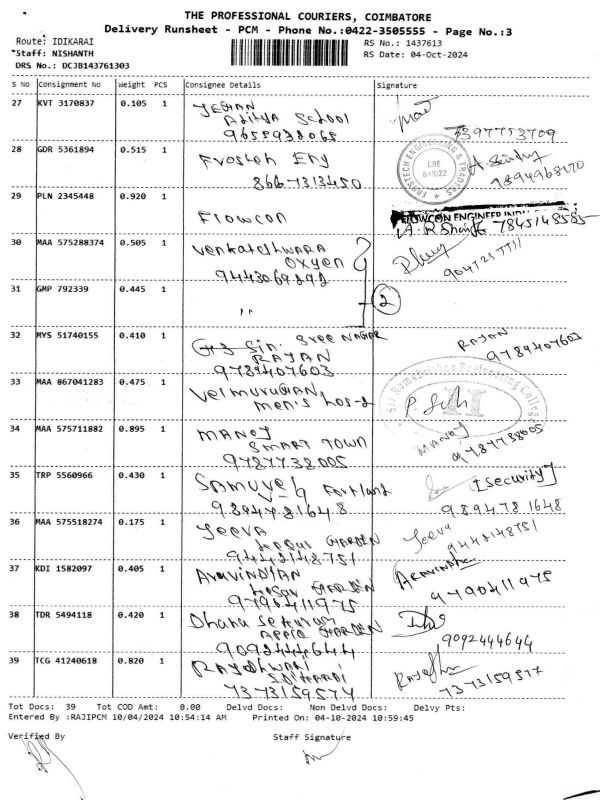 THE PROFESSIONAL COURIERS, COIMBATORE
Delivery Runsheet - PCM - Phone No.:0422-3505555 - Page No.:3
Route: IDIKARAI
RS No.: 1437613
Staff: NISHANTH
RS Date: 04-Oct-2024
DRS No.: DCJB143761303
S No Consignment No Weight PCS Consignee Details Signature
27 KVT 3170837 0.105 1
Aditya School
28 GDR 5361894 0.515 1
8667313450
FROSTECH ENGINEERING & TRADERS
CBE
29 PLN 2345448 0.920 1 Flowcon
FLOWCON ENGINEER
7845148585
30 MAA 575288374 0.505 1 Venkateshwara
Oxyen
31 GMP 792339 0.445 1 ,,
2
32 MYS 51740155 0.410 1 Sree NAGAR
RAJAN
9789407603
RAJAN
9789407603
33 MAA 867041283 0.475 1 VelmuruGAN
men's hos-2
Sri Ramakrishna Engineering College
34 MAA 575711882 0.895 1 MANOJ
SMART TOWN
9787738005
MANOJ
9787738005
35 TRP 5560966 0.430 1
9894781648
[Security]
989478 1648
36 MAA 575518274 0.175 1 Jeeva
GARDEN
9442148751
Jeeva
9442148751
37 KDI 1582097 0.405 1 AravinDHAN
GARDEN
9790411975
9790411975
38 TDR 5494118 0.420 1 Dhana
GARDEN
9092444644
9092444644
39 TCG 41240618 0.820 1
7373159577
7373159577
Tot Docs: 39 Tot COD Amt: 0.00 Delvd Docs: Non Delvd Docs: Delvy Pts:
Entered By :RAJIPCM 10/04/2024 10:54:14 AM Printed On: 04-10-2024 10:59:45
Verified By Staff Signature